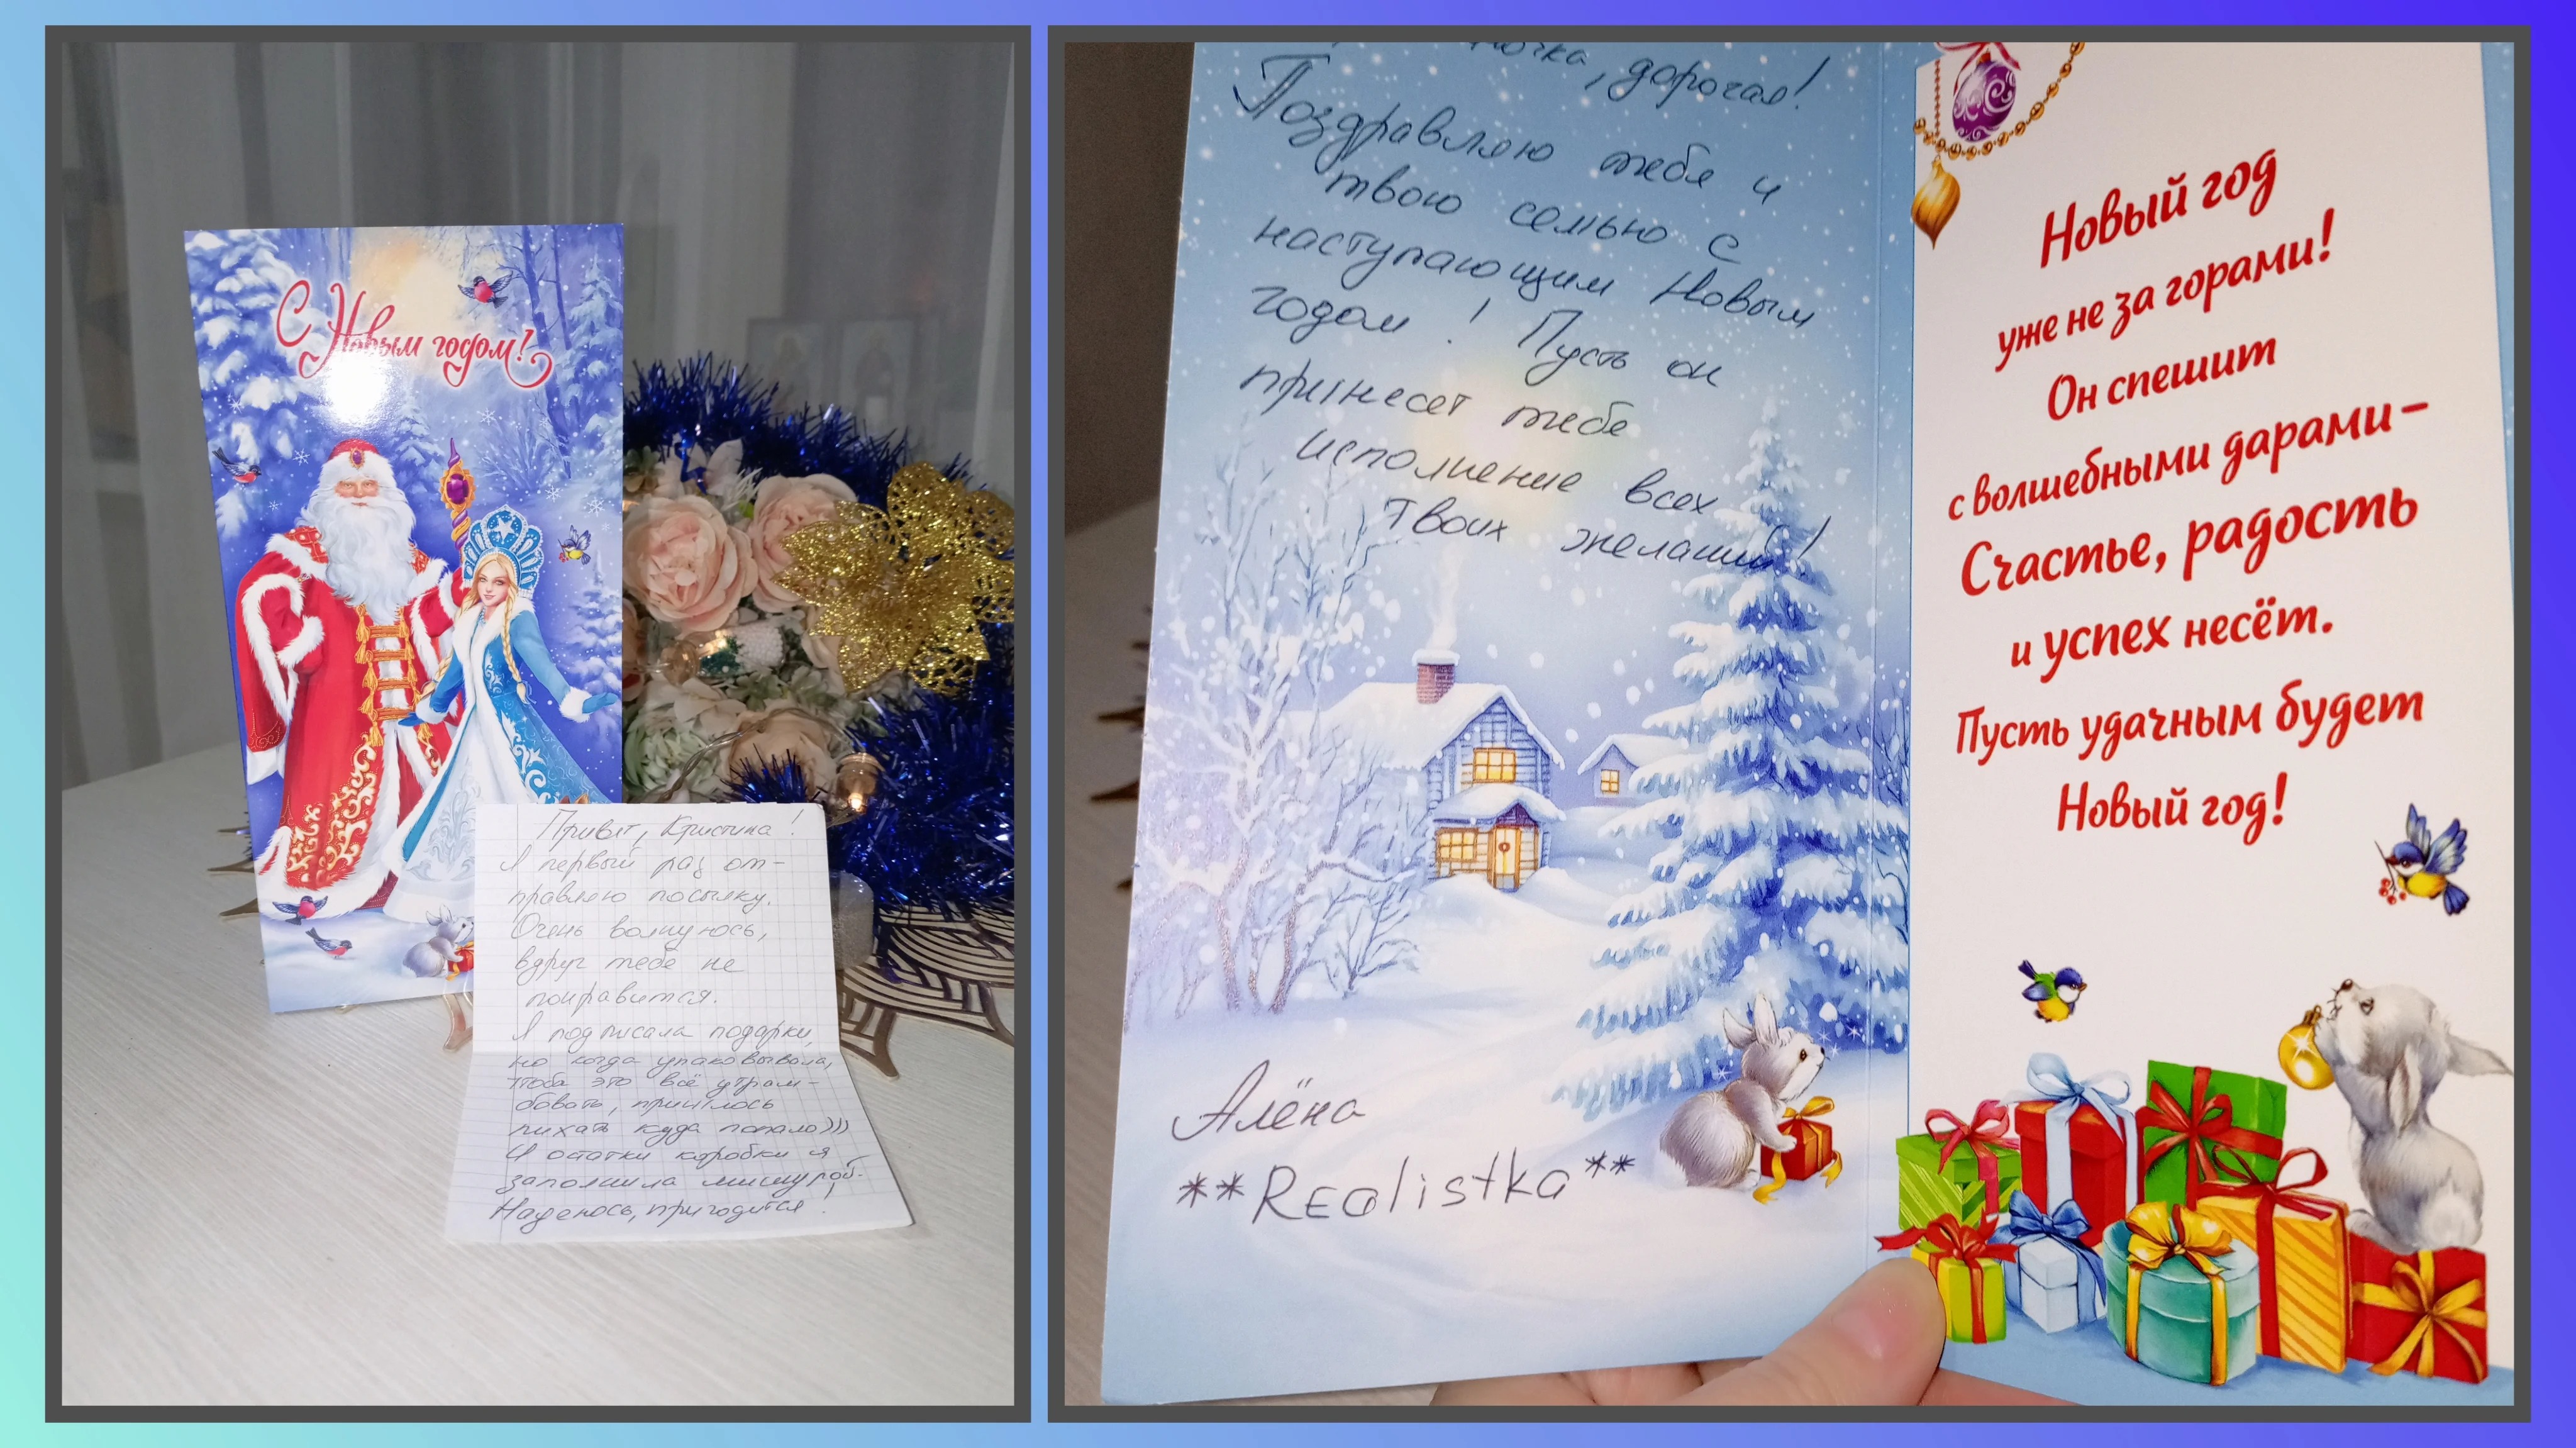 С Новым годом!
Привет, Кристина!
Я первый раз от-
правляю посылку.
Очень волнуюсь,
вдруг тебе не
понравится.
Я подписала подарки,
но когда упаковывала,
чтоб это всё утрам-
бовать, пришлось
пихать куда попало)))
И остатки коробки я
заполнила мишурой.
Надеюсь, пригодится!
дорогая!
Поздравляю тебя и
твою семью с
наступающим Новым
годом! Пусть он
принесет тебе
исполнение всех
твоих желаний!
Алёна
**Realistka**
Новый год
уже не за горами!
Он спешит
с волшебными дарами –
Счастье, радость
и успех несёт.
Пусть удачным будет
Новый год!